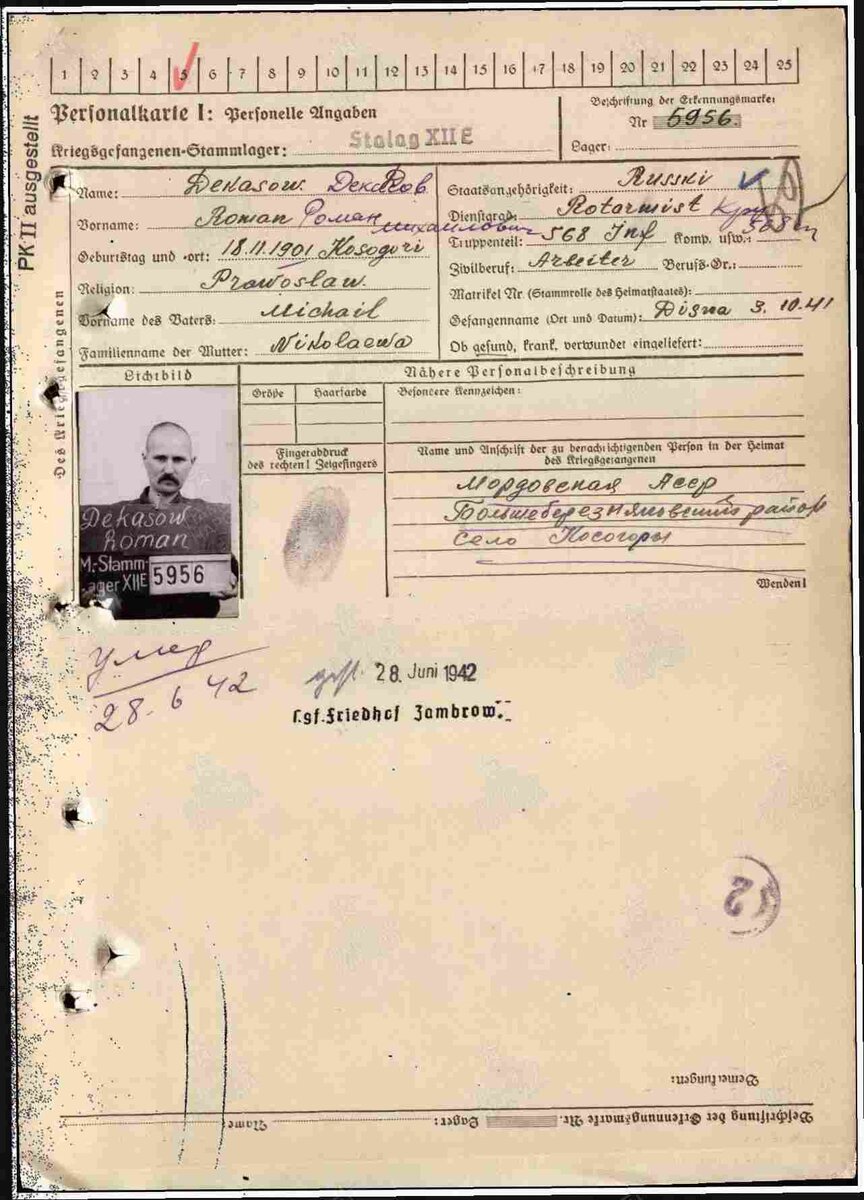 1 2 3 4 5 6 7 8 9 10 11 12 13 14 15 16 17 18 19 20 21 22 23 24 25
PK II ausgestellt
Personalkarte I: Personelle Angaben
Kriegsgefangenen-Stammlager: Stalag XII E
Beschriftung der Erkennungsmarke:
Nr 5956.
Lager:
Des Kriegsgefangenen
Name: Dekasow Декасов
Vorname: Roman Роман Михайлович
Geburtstag und -ort: 18.11.1901 Kosogori
Religion: Prawoslaw.
Vorname des Vaters: Michail
Familienname der Mutter: Nikolaewa
Staatsangehörigkeit: Russki
Dienstgrad: Rotarmist
Truppenteil: 568 Inf Komp. usw.:
Zivilberuf: Arbeiter Berufs-Gr.:
Matrikel Nr (Stammrolle des Heimatstaates):
Gefangenname (Ort und Datum): Disna 3. 10.41
Ob gesund, krank, verwundet eingeliefert:
Lichtbild
Nähere Personalbeschreibung
Größe Haarfarbe Besondere Kennzeichen:
Fingerabdruck
des rechten! Zeigefingers
Name und Anschrift der zu benachrichtigenden Person in der Heimat
des Kriegsgefangenen
Мордовская Асср
Большеберезняковский район
село Косогоры
Wenden!
Dekasow
Roman
M.-Stamm-
lager XII E 5956
умер
28. 6 42
gest. 28. Juni 1942
Kgf. Friedhof Zambrow.
Bemerkungen:
Beschriftung der Erkennungsmarke Nr. Lager: Name: